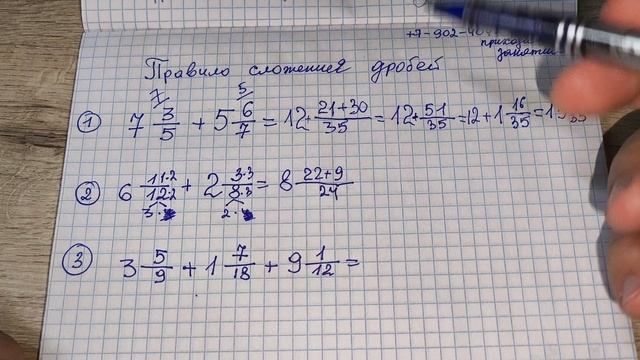 +7-902-
приходи
занятие
Правило сложения дробей
① 7 3/5 + 5 6/7 = 12 + 21+30/35 = 12 + 51/35 = 12 + 1 16/35 = 1
② 6 11·2/12·2 + 2 3·3/8·3 = 8 22+9/24
3· 2·
③ 3 5/9 + 1 7/18 + 9 1/12 =